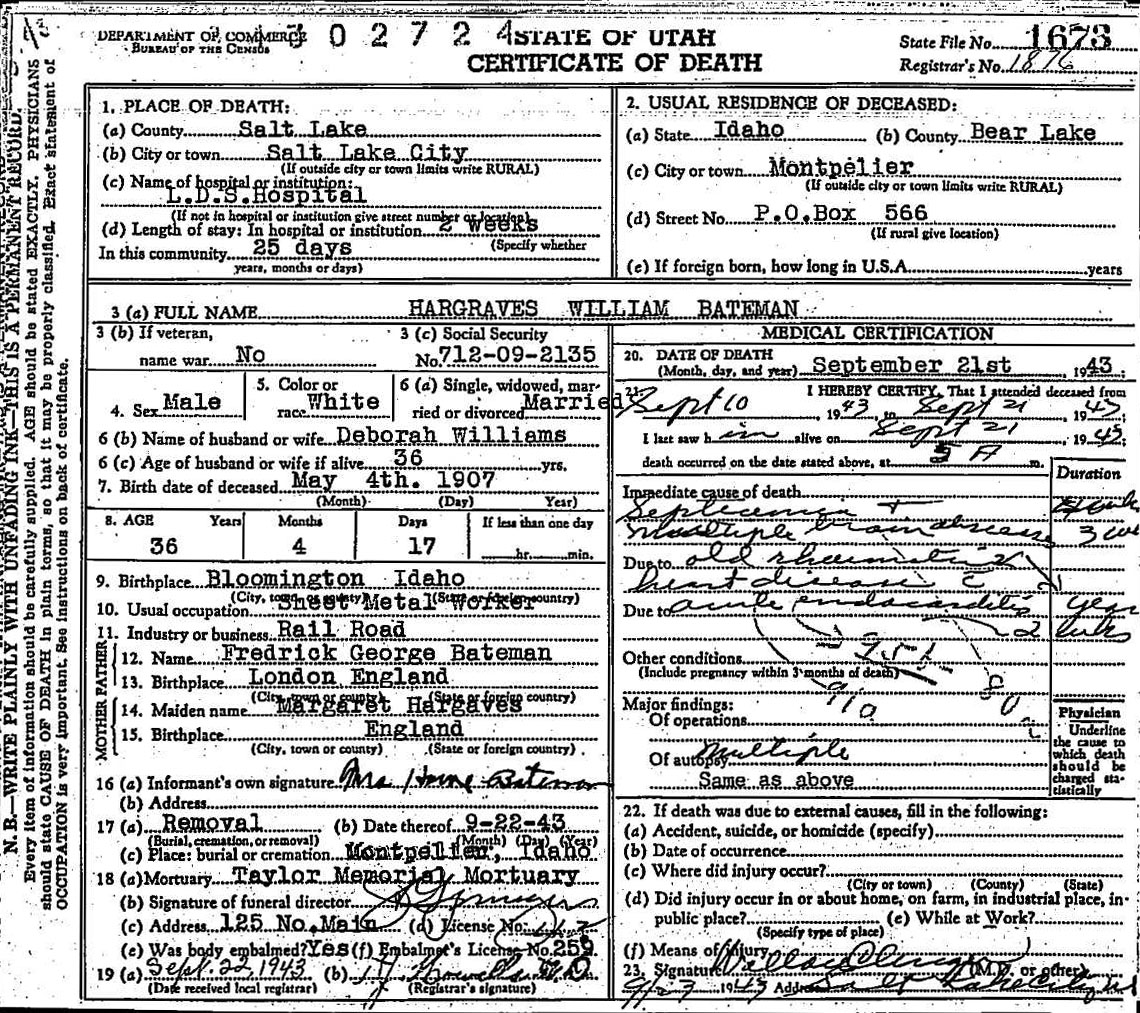 DEPARTMENT OF COMMERCE
BUREAU OF THE CENSUS
3 0 2 7 2 4
STATE OF UTAH
CERTIFICATE OF DEATH
State File No. 1673
Registrar's No. 1876
N. B.—WRITE PLAINLY WITH UNFADING INK—THIS IS A PERMANENT RECORD.
Every item of information should be carefully supplied. AGE should be stated EXACTLY. PHYSICIANS
should state CAUSE OF DEATH in plain terms, so that it may be properly classified. Exact statement of
OCCUPATION is very important. See instructions on back of certificate.
1. PLACE OF DEATH:
(a) County Salt Lake
(b) City or town Salt Lake City
(If outside city or town limits write RURAL)
(c) Name of hospital or institution:
L.D.S. Hospital
(If not in hospital or institution give street number or location)
(d) Length of stay: In hospital or institution 2 weeks
(Specify whether
In this community 25 days
years, months or days)
2. USUAL RESIDENCE OF DECEASED:
(a) State Idaho (b) County Bear Lake
(c) City or town Montpelier
(If outside city or town limits write RURAL)
(d) Street No. P.O.Box 566
(If rural give location)
(e) If foreign born, how long in U.S.A. years
3 (a) FULL NAME HARGRAVES WILLIAM BATEMAN
3 (b) If veteran,
name war No
3 (c) Social Security
No. 712-09-2135
4. Sex Male
5. Color or
race White
6 (a) Single, widowed, mar-
ried or divorced Married
6 (b) Name of husband or wife Deborah Williams
6 (c) Age of husband or wife if alive 36 yrs.
7. Birth date of deceased May 4th. 1907
(Month) (Day) Year)
8. AGE Years Months Days If less than one day
36 4 17 hr. min.
9. Birthplace Bloomington Idaho
(City, town, or county) (State or foreign country)
10. Usual occupation Sheet Metal Worker
11. Industry or business Rail Road
FATHER
12. Name Fredrick George Bateman
13. Birthplace London England
(City, town or county) (State or foreign country)
MOTHER
14. Maiden name Margaret Hargaves
15. Birthplace England
(City, town or county) (State or foreign country)
16 (a) Informant's own signature Mrs Bateman
(b) Address
17 (a) Removal (b) Date thereof 9-22-43
(Burial, cremation, or removal) (Month) (Day) (Year)
(c) Place: burial or cremation Montpelier, Idaho
18 (a) Mortuary Taylor Memorial Mortuary
(b) Signature of funeral director
(c) Address 125 No. Main (d) License No.
(e) Was body embalmed? Yes (f) Embalmer's License No. 259
19 (a) Sept. 22, 1943 (b)
(Date received local registrar) (Registrar's signature)
MEDICAL CERTIFICATION
20. DATE OF DEATH
(Month, day, and year) September 21st 1943.
21. I HEREBY CERTIFY, That I attended deceased from
Sept 10 1943 to Sept 21 1943
I last saw him alive on Sept 21 1943,
death occurred on the date stated above, at 5 A m.
Duration
Immediate cause of death
Septicemia +
multiple brain disease 3
Due to old rheumatic
heart disease c
Due to acute endocarditis
2 wks
Other conditions
(Include pregnancy within 3 months of death)
Major findings:
Of operations
Of autopsy Multiple
Same as above
Physician
Underline
the cause to
which death
should be
charged sta-
tistically
22. If death was due to external causes, fill in the following:
(a) Accident, suicide, or homicide (specify)
(b) Date of occurrence
(c) Where did injury occur?
(City or town) (County) (State)
(d) Did injury occur in or about home, on farm, in industrial place, in
public place? (e) While at Work?
(Specify type of place)
(f) Means of Injury
23. Signature (M.D. or other)
9/23 1943 Address Salt Lake City